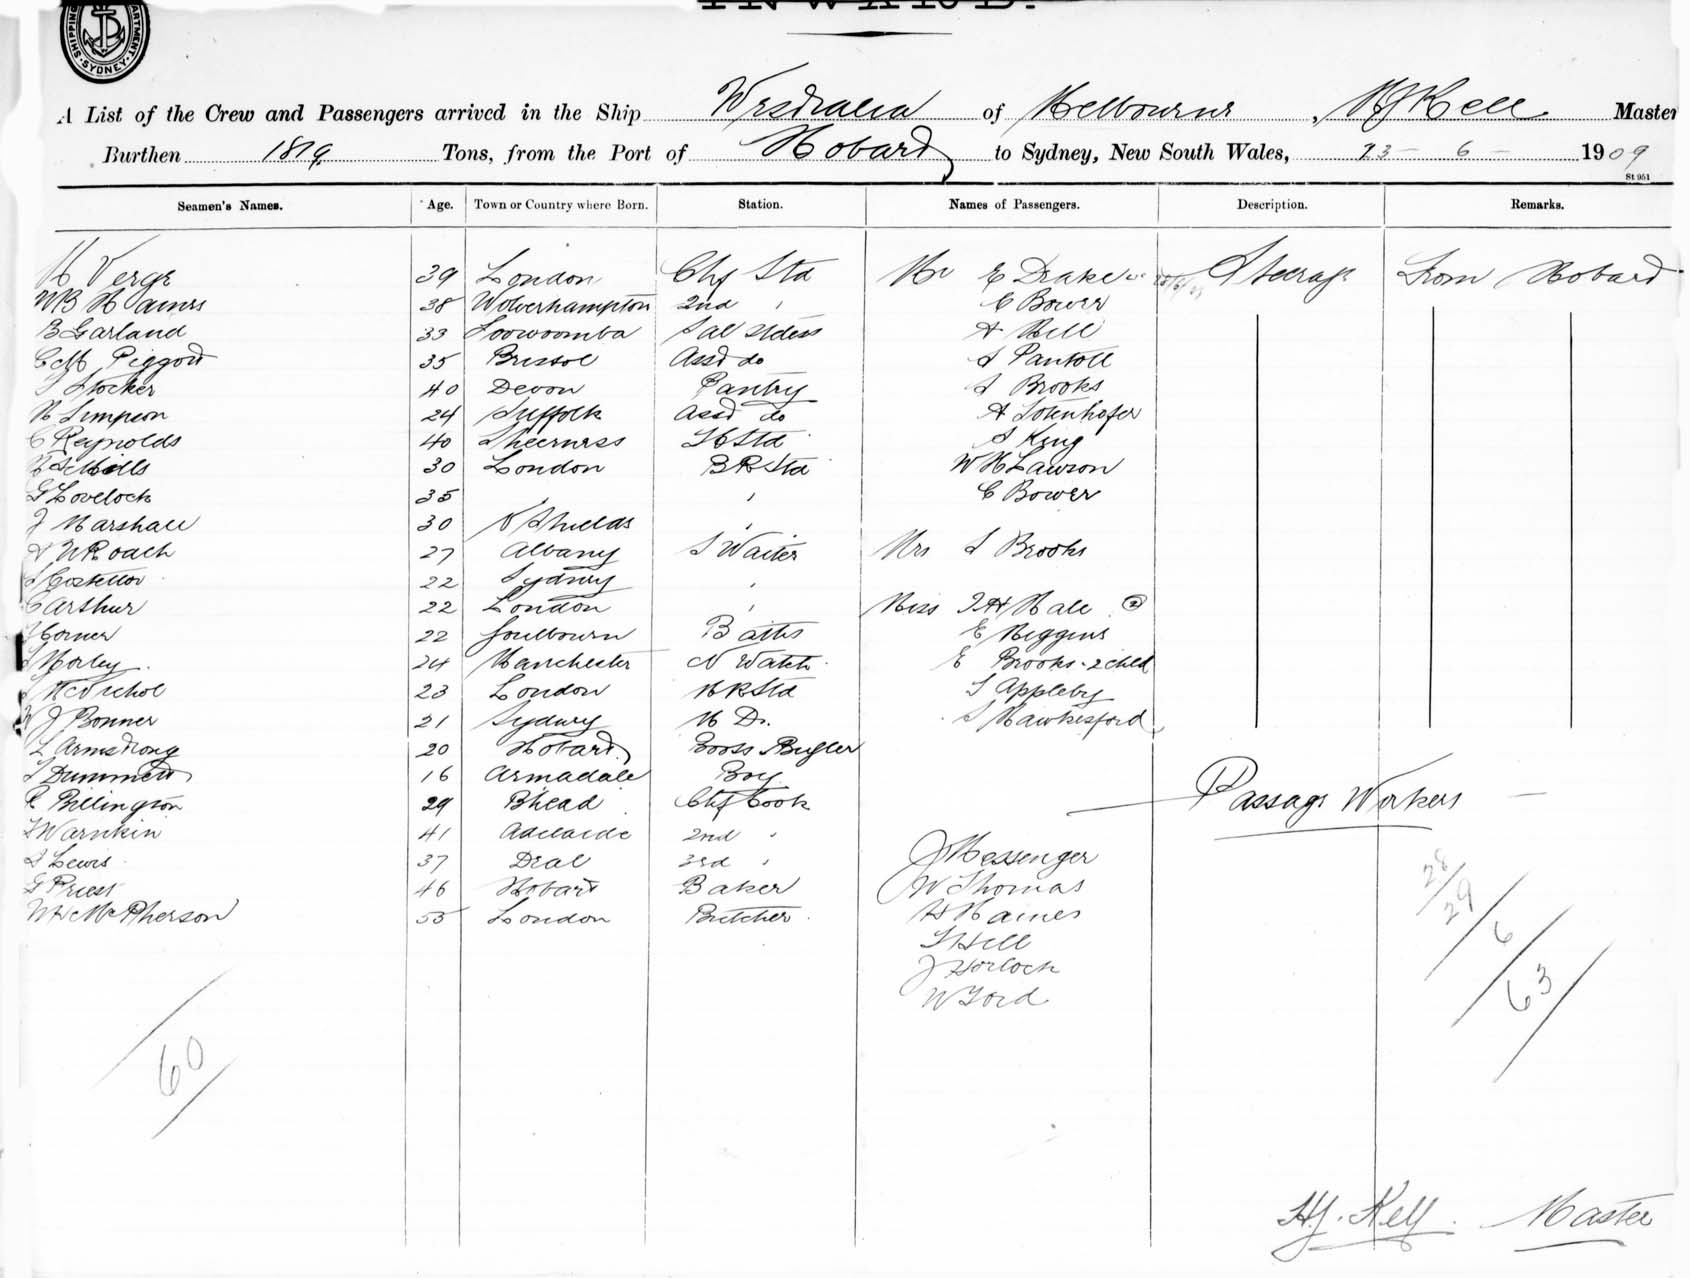 INWARD.
SHIPPING DEPARTMENT SYDNEY
A List of the Crew and Passengers arrived in the Ship Westralia of Melbourne, H J Kell Master
Burthen 1819 Tons, from the Port of Hobart to Sydney, New South Wales, 23 - 6 - 1909
St 951
Seamen's Names. Age. Town or Country where Born. Station. Names of Passengers. Description. Remarks.
H Verge 39 London Chf Std Mr E Drake Steerage From Hobart
W B Haines 38 Wolverhampton 2nd " C Bower
B Garland 33 Toowoomba Sal Stdess A Hill
C M Piggott 35 Bristol Asst do S Pantoll
S Stocker 40 Devon Pantry S Brooks
H Simpson 24 Suffolk Asst do A
C Reynolds 40 Sheerness Std S King
Mills 30 London B R Std W H Lawson
G Lovelock 35 " C Bower
J Marshall 30 N Shields "
Roach 27 Albany S Waiter Mrs S Brooks
Costelloe 22 Sydney "
C Arthur 22 London " Miss Hale 2
Corner 22 Goulbourn Baths E Higgins
Morley 24 Manchester N Watch E Brooks - 2 child
McNichol 23 London Std S Appleby
W J Bonner 21 Sydney Do. S Hawkesford
L Armstrong 20 Hobart Boots Bugler
S Dummett 16 Armadale Boy
R Billington 29 B'head Chf Cook Passage Workers
Warnkin 41 Adelaide 2nd "
S Lewis 37 Deal 3rd " J Messenger
G Priest 46 Hobart Baker W Thomas
W H McPherson 55 London Butcher H Haines
S Hill
J Horlock
W Ford
28
29
6
63
60
H. J. Kell. Master